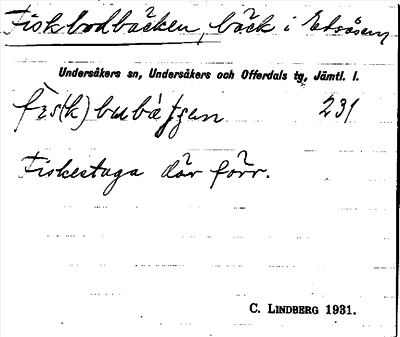 Fiskbodbäcken, bäck i Edsåsen,
Undersåkers sn, Undersåkers och Offerdals tg, Jämtl. l.
fɪs(k)bubæʹʃʃen 231
Fiskestuga där förr.
C. LINDBERG 1931.